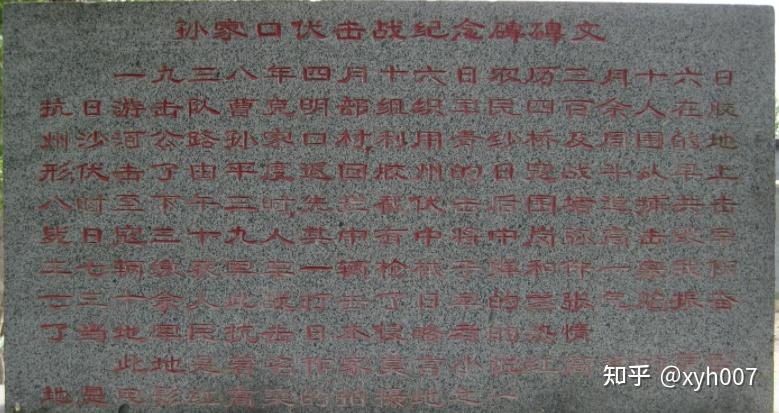 孙家口伏击战纪念碑碑文
一九三八年四月十六日农历三月十六日
抗日游击队曹克明部组织军民四百余人在胶
州沙河公路孙家口村,利用青纱桥及周围的地
形,伏击了由平度返回胶州的日寇战斗从早上
八时至下午二时,先拦截伏击后围堵追捕共击
毙日寇三十九人其中有中将中岗弥高击毁军
车七辆缴获军车一辆枪械子弹和作一宗我伤
亡三十余人此战打击了日军的嚣张气焰振奋
了当地军民抗击日本侵略者的热情
此地是著名作家莫言小说红高
地是电影红高粱的拍摄地之一
知乎 @xyh007